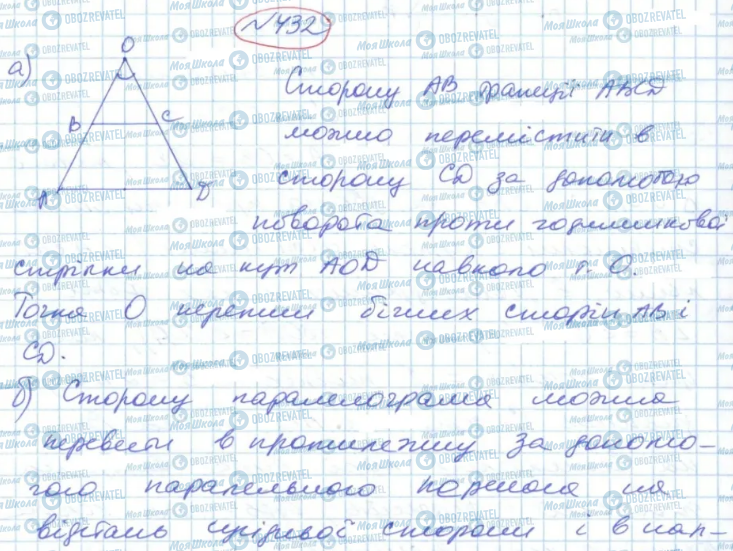 №432
а)
O
B C
A D
Сторону AB трапеції ABCD
можно перемістити в
сторону CD за допомогою
поворота проти годинникової
стрілки на кут AOD навколо т. O.
Точка O перетин бічних сторін AB і
CD.
б) Сторону паралелограма можна
перевести в протилежну за допомо-
гою паралельного
відстань сторони і в нап-
Моя Школа
OBOZREVATEL